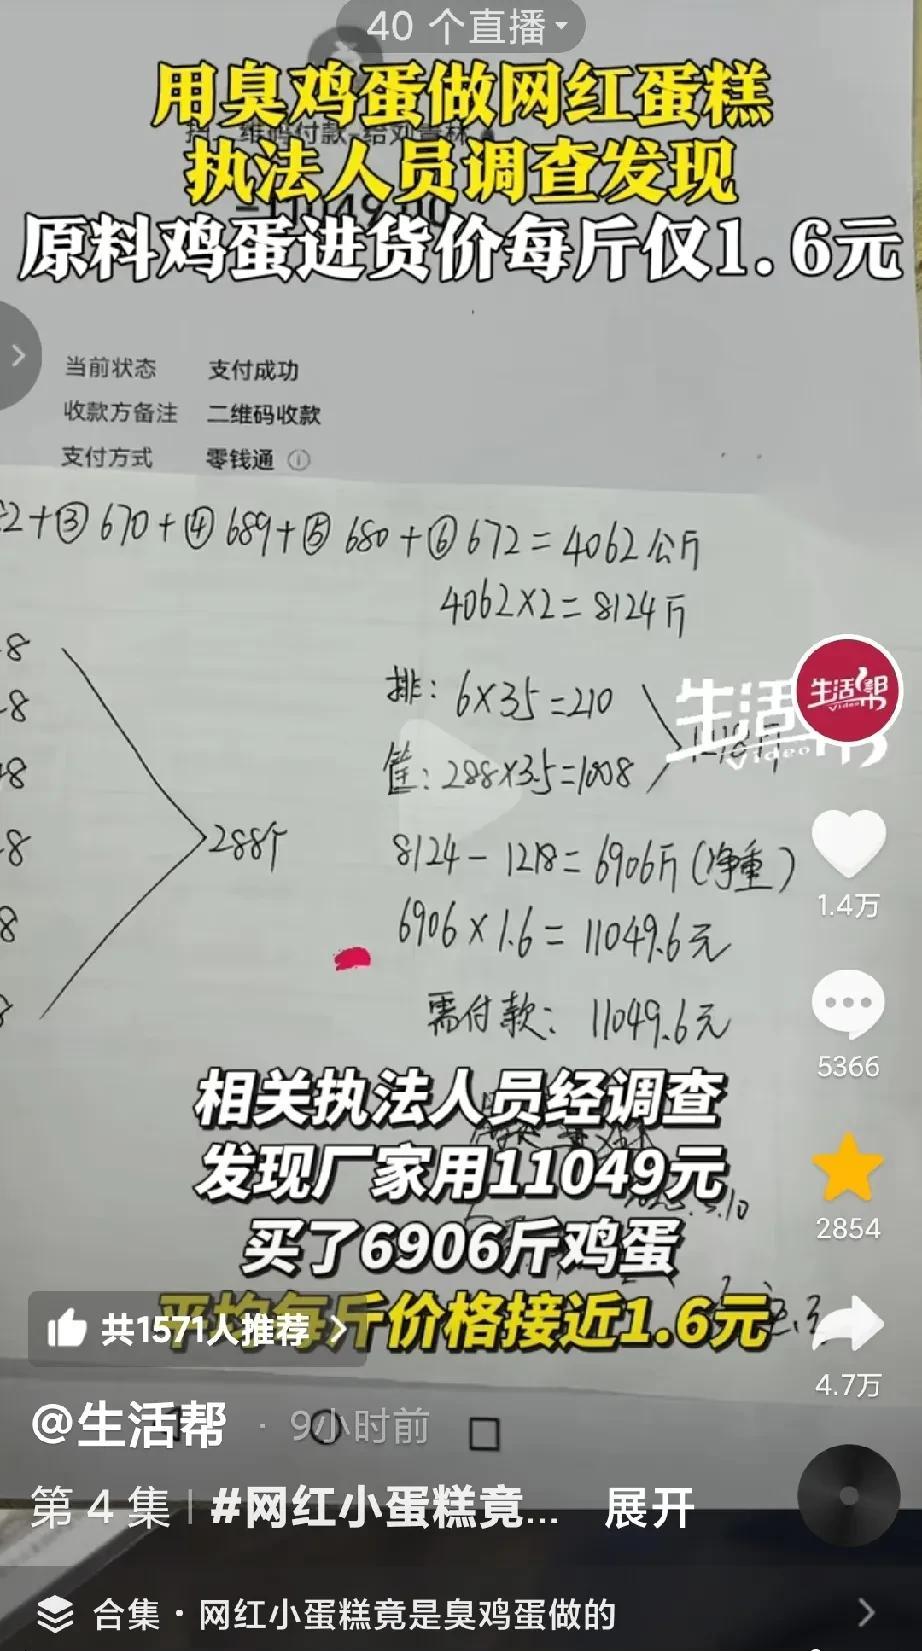 40 个直播
用臭鸡蛋做网红蛋糕
维码付款-给刘
执法人员调查发现
原料鸡蛋进货价每斤仅1.6元
当前状态 支付成功
收款方备注 二维码收款
支付方式 零钱通
2+③670+④689+⑤680+⑥672=4062公斤
4062×2=8124斤
8
排：6×35=210
生活帮
Video
生活帮
Video
8
筐：288×3.5=1008
8
8
288个
8124-1218=6906斤(净重)
1.4万
8
6906×1.6=11049.6元
需付款：11049.6元
5366
相关执法人员经调查
发现厂家用11049元
买了6906斤鸡蛋
2854
平均每斤价格接近1.6元
共1571人推荐
4.7万
@生活帮 · 9小时前
第 4 集 | #网红小蛋糕竟... 展开
合集·网红小蛋糕竟是臭鸡蛋做的